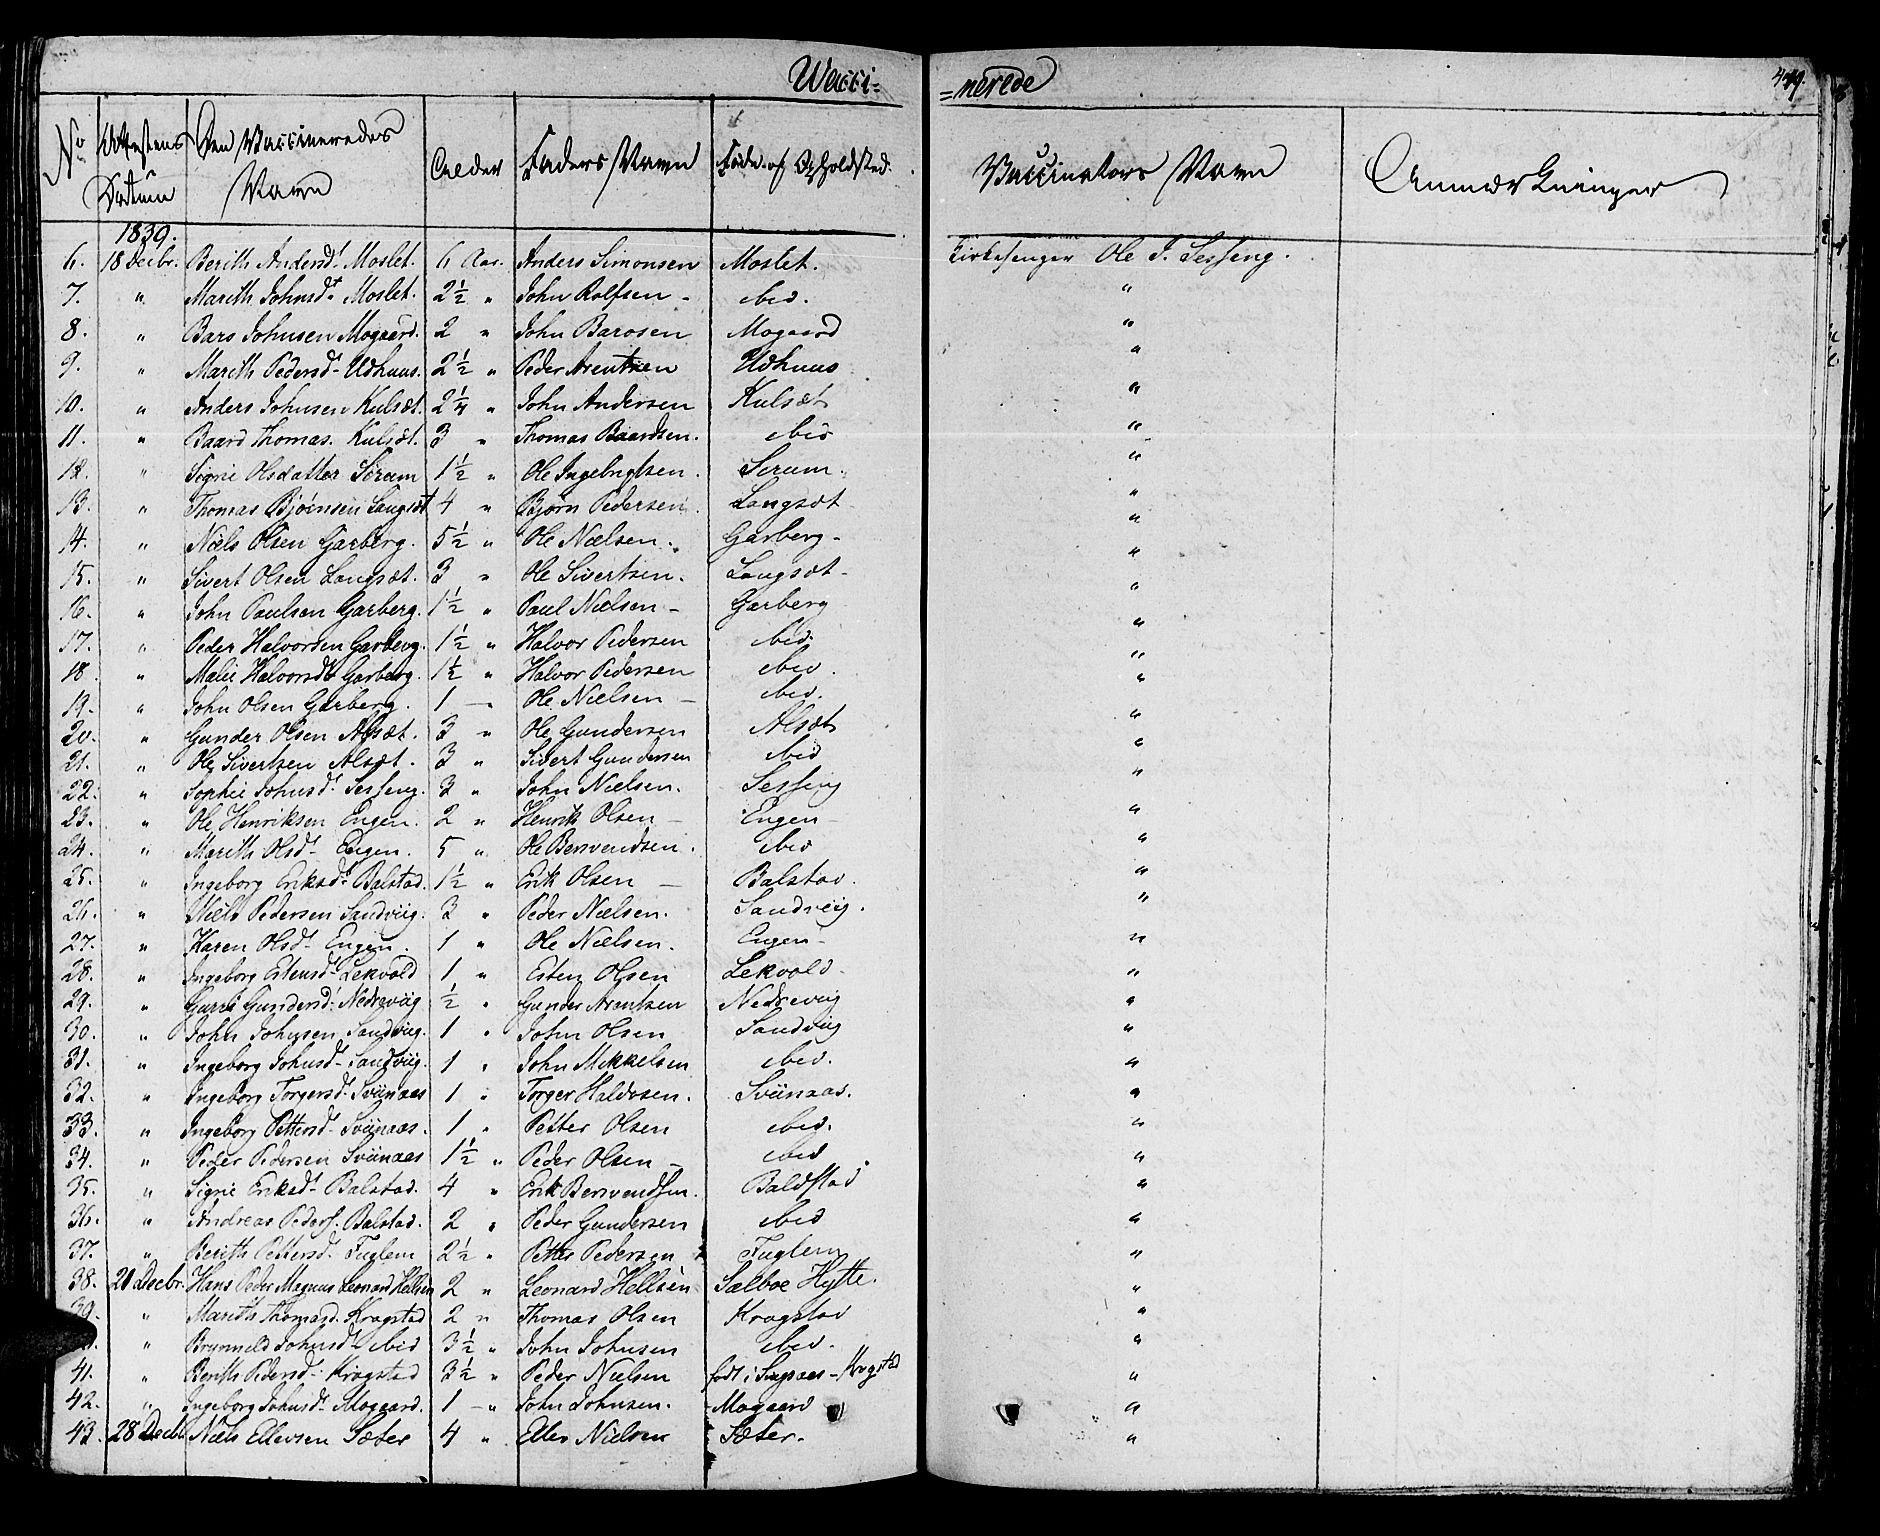 Wacci= =nerede
No Attestens Datum Den Vaccineredes Navn Alder Faders Navn Føde og Opholdsted. Vaccinators Navn Anmærkninger
1839.
6. 18 Decbr. Berith Andersd. Moslet. 6 Aar. Anders Simonsen Moslet. Kirkesanger Ole J. Sesseng.
7. " Marith Johnsd. Moslet. 2½ " John Rolfsen - ibid. "
8. " Bars Johnsen Mogaard. 2 " John Barosen Mogaard "
9. " Marith Pedersd. Udhuus. 2½ " Peder Arentsen Udhuus "
10. " Anders Johnsen Kulsæt. 2¼ " John Andersen Kulsæt "
11. " Baard Thomas. Kulsæt. 3 " Thomas Baardsen. ibid "
12. " Signe Olsdatter Sørum 1½ " Ole Ingebrigtsen. Sørum. "
13. " Thomas Bjørnsen Langsæt 4 " Bjørn Pedersen. Langsæt "
14. " Niels Olsen Garberg. 5½ " Ole Nielsen. Garberg - "
15. " Sivert Olsen Langsæt. 3 " Ole Sivertsen. Langsæt - "
16. " John Paulsen Garberg. 1½ " Paul Nielsen - Garberg "
17. " Peder Halvorsen Garberg. 1½ " Halvor Pedersen ibid "
18. " Malii Halvorsd. Garberg. 1½ " Halvor Pedersen ibid. "
19. " John Olsen Garberg. 1 - " Ole Nielsen - ibid. "
20. " Gunder Olsen Alsæt. 3 " Ole Gundersen Alsæt "
21. " Ole Sivertsen Alsæt. 3 " Sivert Gundersen ibid "
22. " Sophie Johnsd. Sesseng. 3 " John Nielsen. Sesseng "
23. " Ole Henriksen Engen. 2 " Henrik Olsen - Engen - "
24. " Marith Olsd. Engen. 5 " Ole Bersvendsen. ibid "
25. " Ingeborg Eriksd. Balstad. 1½ " Erik Olsen - Balstad. "
26. " Niels Pedersen Sandviig. 3 " Peder Nielsen. Sandviig. "
27. " Karen Olsd. Engen. 1 " Ole Nielsen. Engen - "
28. " Ingeborg Estensd. Lekvold 1 " Esten Olsen Lekvold - "
29. " Gunder­sd. Nedreviig ½ " Gunder Arentsen Nedreviig "
30. " John Johnsen Sandviig. 1 " John Olsen Sandviig "
31. " Ingeborg Johnsd. Sandviig. 1 " John Mikkelsen ibid. "
32. " Ingeborg Torgersd. Sviinaas 1 " Torger Haldosen. Sviinaas. "
33. " Ingeborg Pettersd. Sviinaas. 1 " Petter Olsen ibid. "
34. " Peder Pedersen Sviinaas 1½ " Peder Olsen - ibid "
35. " Signe Eriksd. Balstad. 4 " Erik Bersvendsen. Baldstad "
36. " Andreas Peders. Balstad. 2 " Peder Gundersen ibid "
37. " Berith Pettersd. Fuglem 2½ " Petter Pedersen Fuglem "
38. 21 Decbr. Hans Peder Magnus Leonard Hellsen 2 " Leonard Hellsen Sælboe Hytte. "
39. " Marith Thomasd. Kragstad 2 " Thomas Olsen Kragstad "
" Brynnild Johnsd. ibid 3½ " John Johnsen ibid. "
41. " Berith Pedersd. Kragstad 3½ " Peder Nielsen født i - Kragstad "
42. " Ingeborg Johnsd. Mogaard. 1 - " John Johnsen. Mogaard "
43. 28 Decbr Niels Ellevsen Sæter 4 " Ellev Nielsen Sæter. "